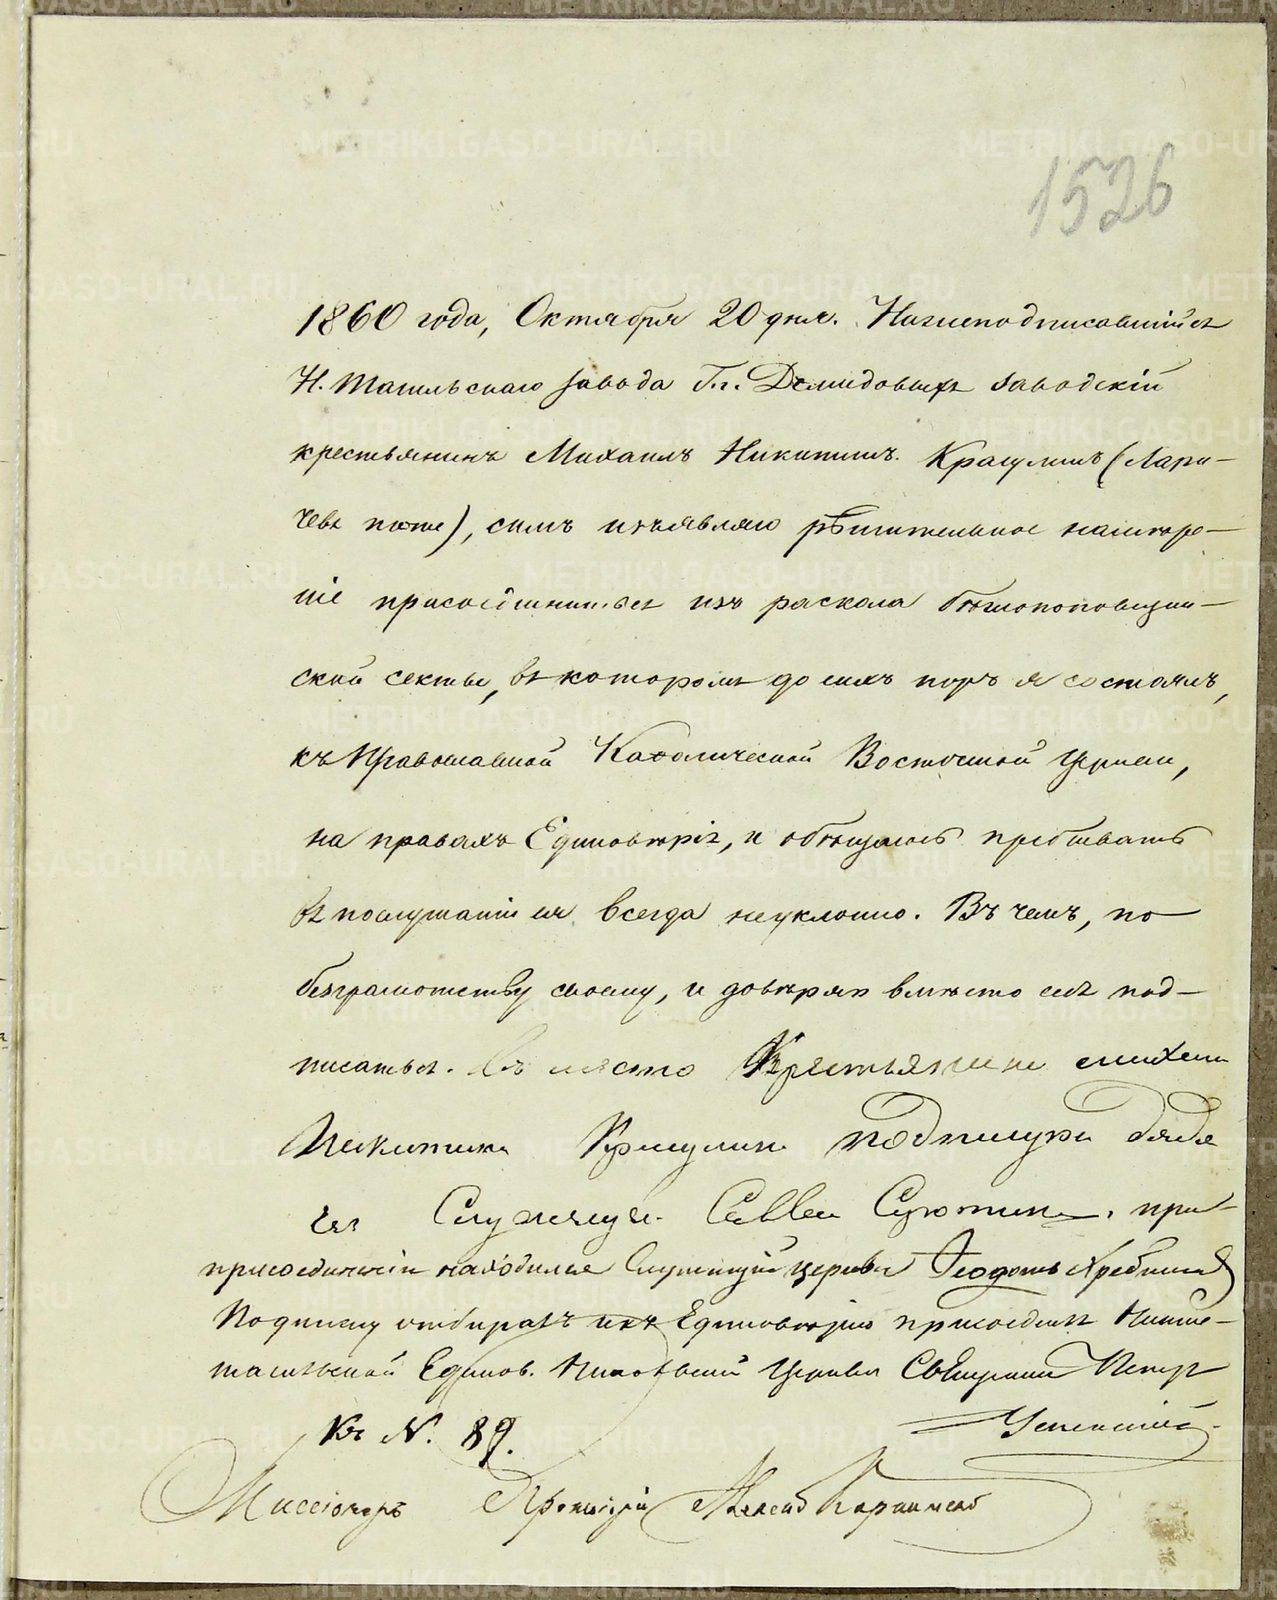 1526
1860 года, Октября 20 дня. Нижеподписавшійся
Н. Тагильскаго завода Гг. Демидовыхъ заводскій
крестьянинъ Михаилъ Никитинъ Красулинъ (Лари-
чевъ тоже), симъ изъявляю рѣшительное намѣре-
ніе присоединиться изъ раскола бѣглопоповщин-
ской секты, въ которомъ до сихъ поръ я состоялъ,
къ Православной Каѳолической Восточной Церкви,
на правахъ Единовѣрія, и обѣщаюсь пребывать
въ послушаніи ея всегда неуклонно. Въ чемъ, по
безграмотству своему, и довѣряю вмѣсто себя под-
писаться. Въ место Крестьянина михаила
Никитина Красулина подписуюсь дядя
его Служащий Савва Сиротинъ. При
присоединеніи находился Служащій церкви Ѳеодотъ
Подписку отбиралъ изъ Единовѣрію присоединилъ Нижне-
тагильской Единов. Николаевской Церкви Священникъ Петръ
Успенскій
Къ N. 89.
Миссіонеръ Протоіерей
METRIKI.GASO-URAL.RU